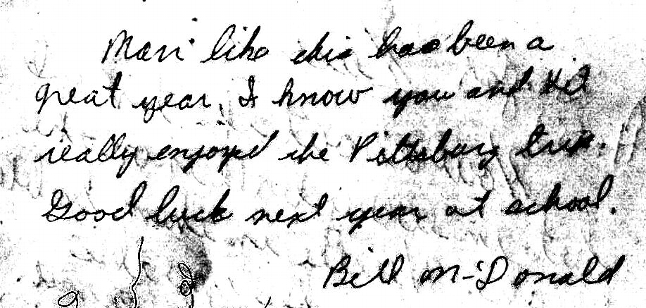 Man like this has been a
great year. I know you and
really enjoyed the Pittsburg trip.
Good luck next year at school.
Bill McDonald